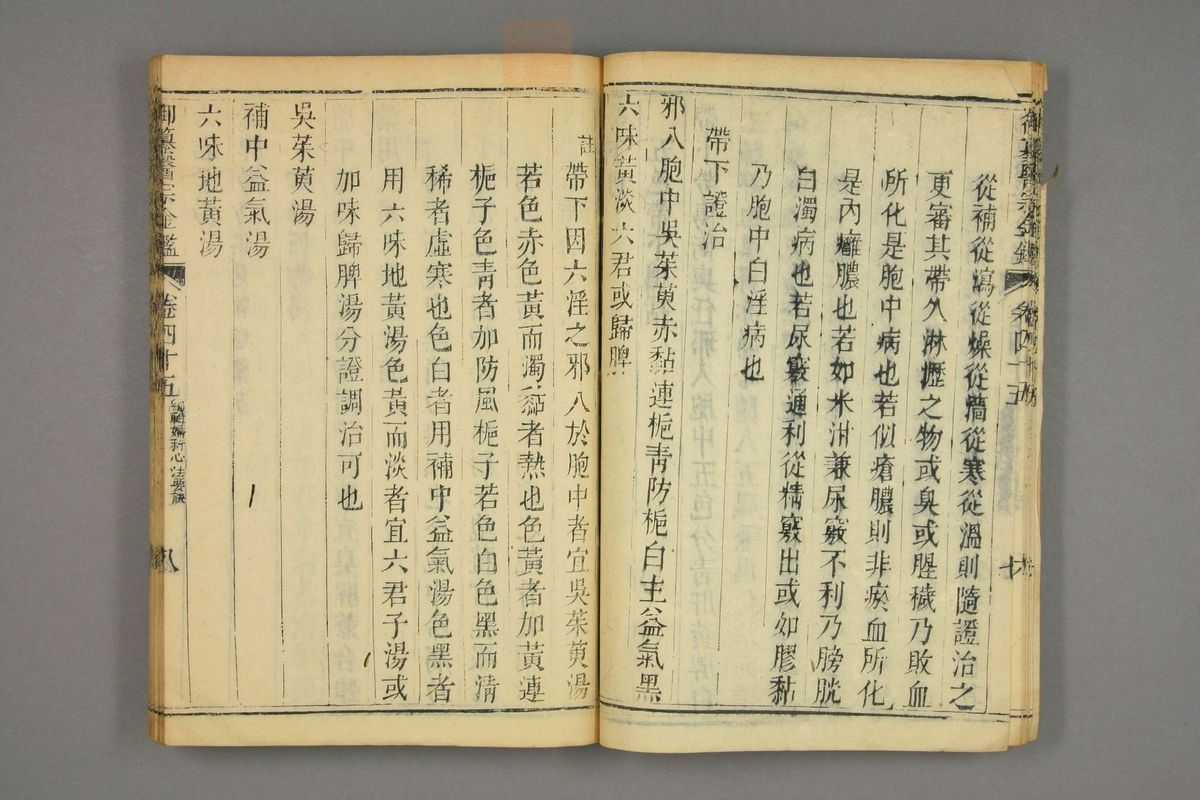 從補從瀉從燥從濇從寒從溫則隨證治之
更審其帶久淋瀝之物或臭或腥穢乃敗血
所化是胞中病也若似瘡膿則非瘀血所化
是內癰膿也若如米泔兼尿竅不利乃膀胱
白濁病也若尿竅通利從精竅出或如膠黏
乃胞中白淫病也
帶下證治
邪入胞中吳茱萸赤黏連梔靑防梔白主益氣黑
六味黃淡六君或歸脾
註 帶下因六淫之邪入於胞中者宜吳茱萸湯
若色赤色黃而濁黏者熱也色黃者加黃連
梔子色靑者加防風梔子若色白色黑而淸
稀者虛寒也色白者用補中益氣湯色黑者
用六味地黃湯色黃而淡者宜六君子湯或
加味歸脾湯分證調治可也
吳茱萸湯
補中益氣湯
六味地黃湯
御纂醫宗金鑑 卷四十五 編輯婦科心法要訣 八